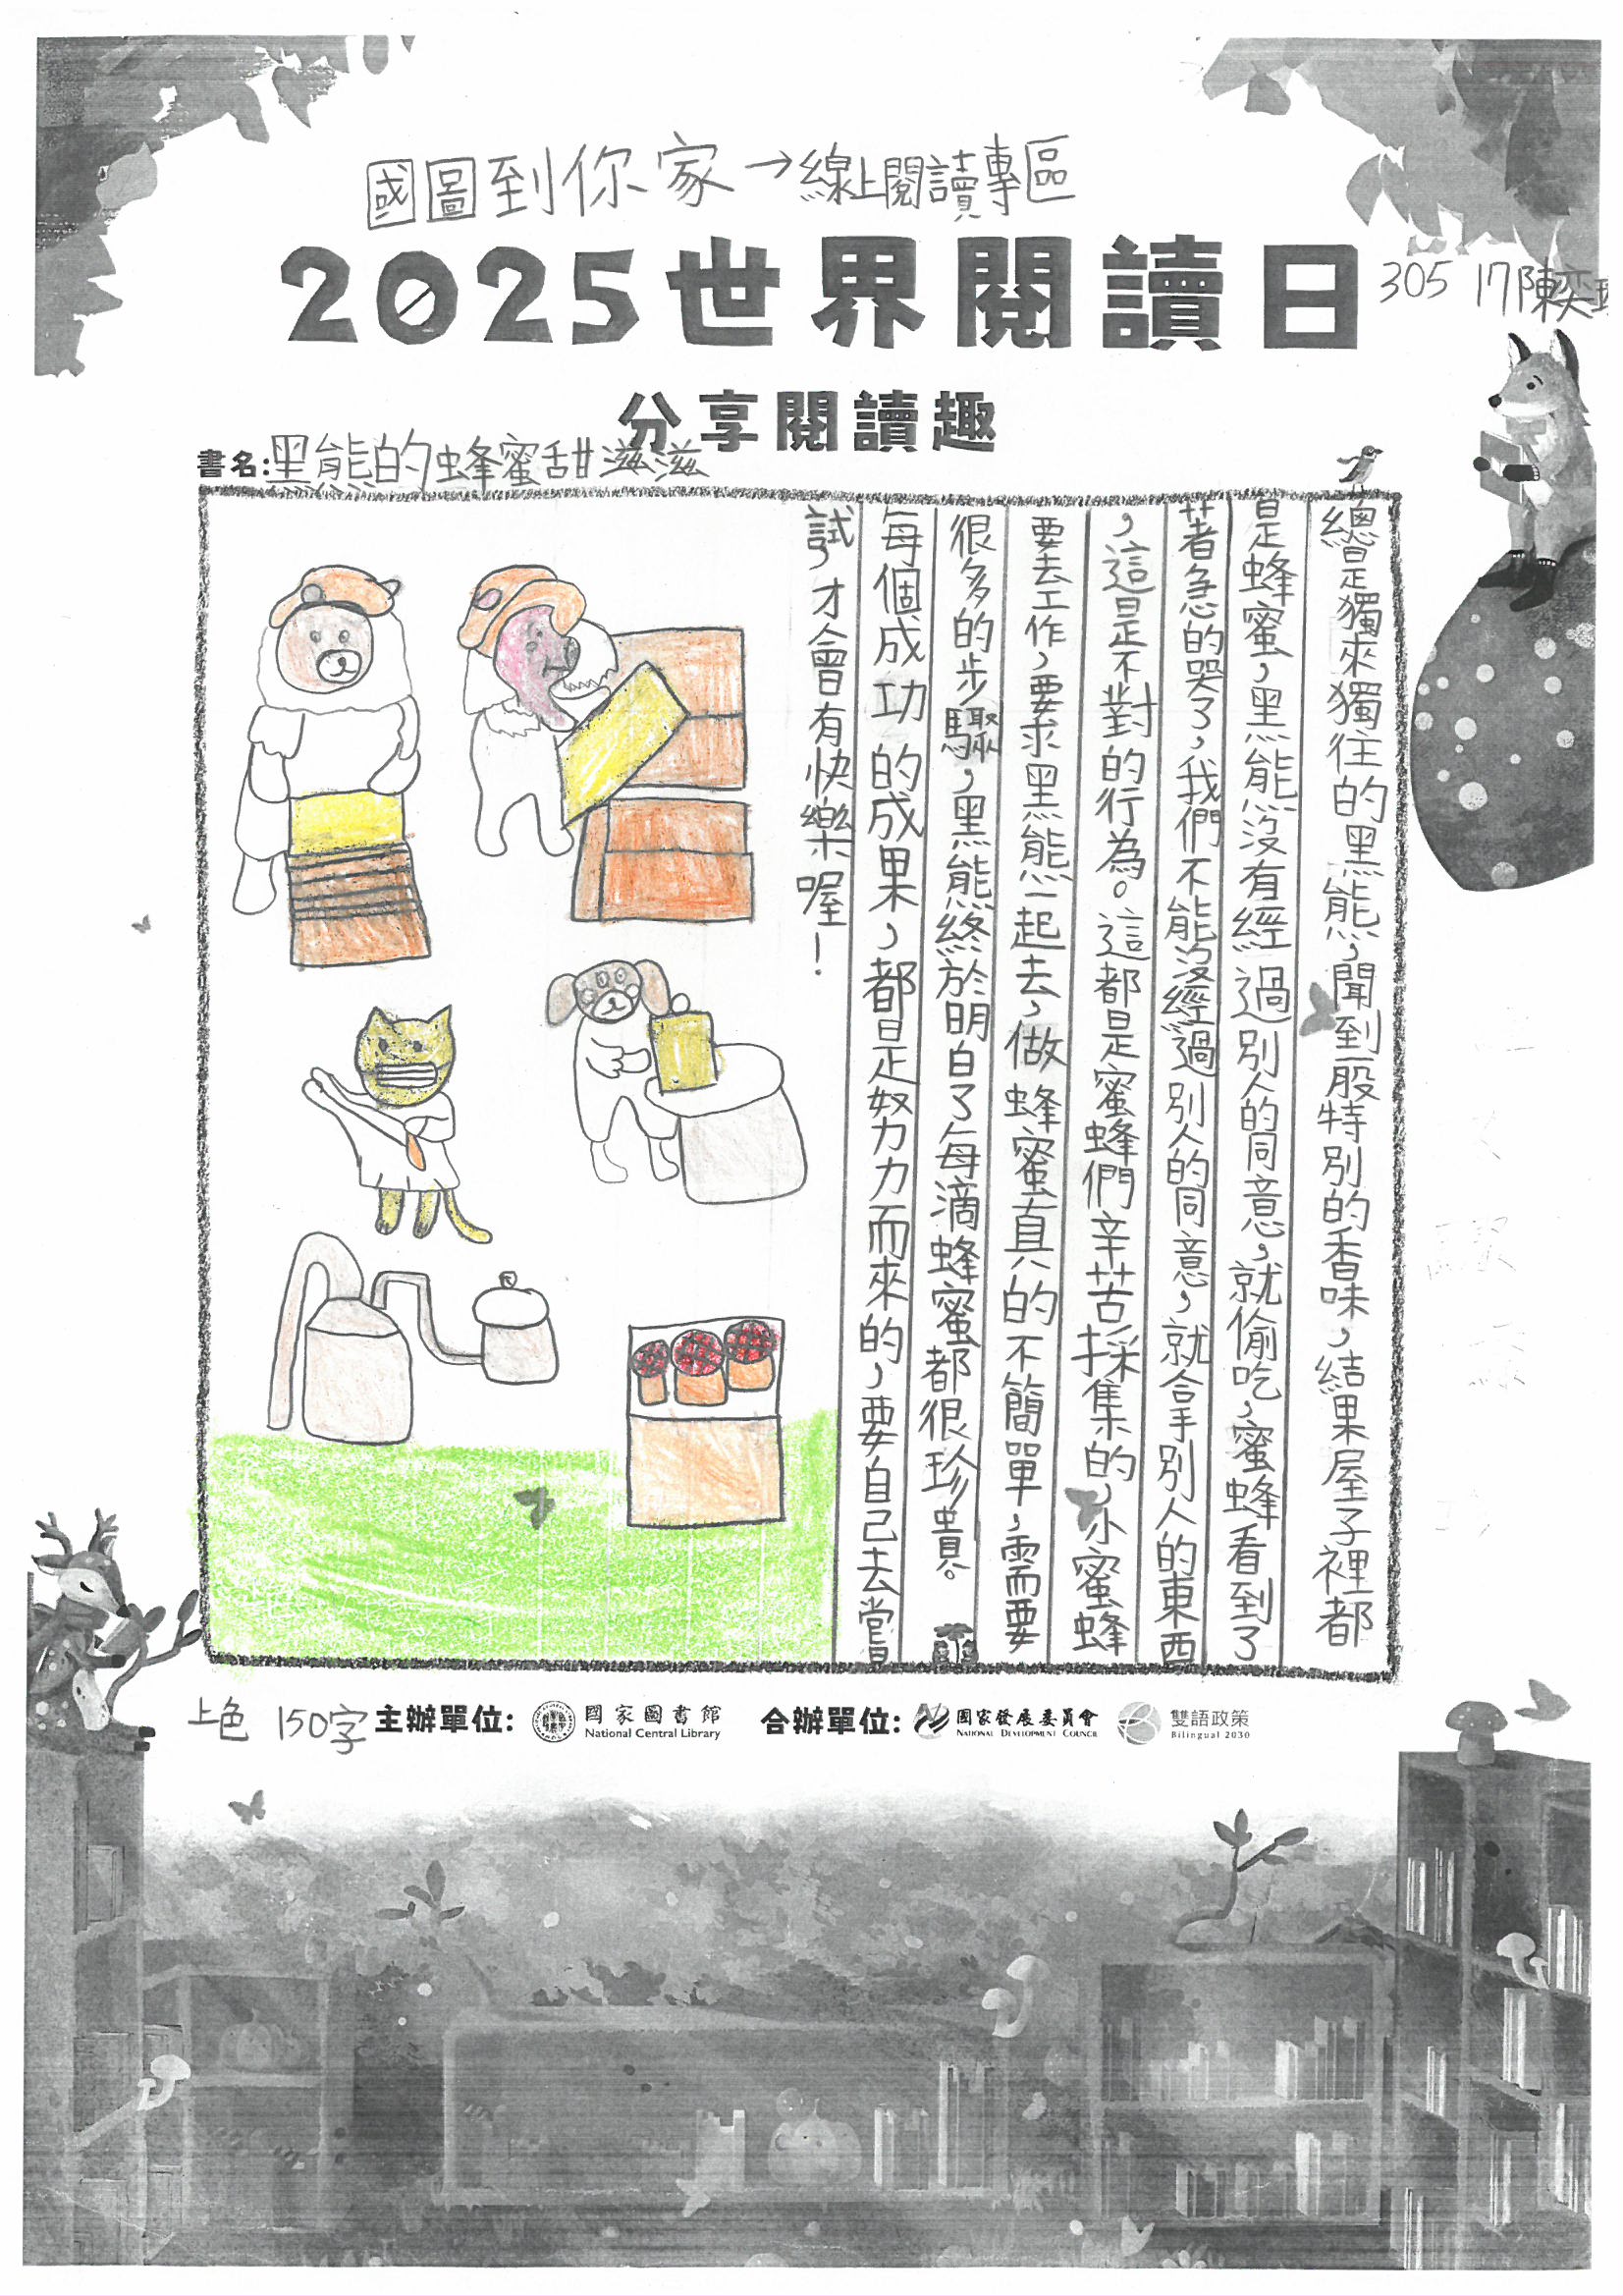 國圖到你家→線上閱讀專區
2025世界閱讀日
305 17陳奕
分享閱讀趣
書名:黑熊的蜂蜜甜滋滋
總是獨來獨往的黑熊,聞到一股特別的香味,結果屋子裡都
是蜂蜜,黑熊沒有經過別人的同意,就偷吃,蜜蜂看到了
著急的哭了,我們不能沒經過別人的同意,就拿別人的東西
,這是不對的行為。這都是蜜蜂們辛苦採集的,小蜜蜂
要去工作,要求黑熊一起去,做蜂蜜真的不簡單,需要
很多的步驟,黑熊終於明白了每滴蜂蜜都很珍貴。
每個成功的成果,都是努力而來的,要自己去嘗
試,才會有快樂喔!
上色 150字
主辦單位: 國家圖書館 National Central Library 合辦單位: 國家發展委員會 NATIONAL DEVELOPMENT COUNCIL 雙語政策 Bilingual 2030